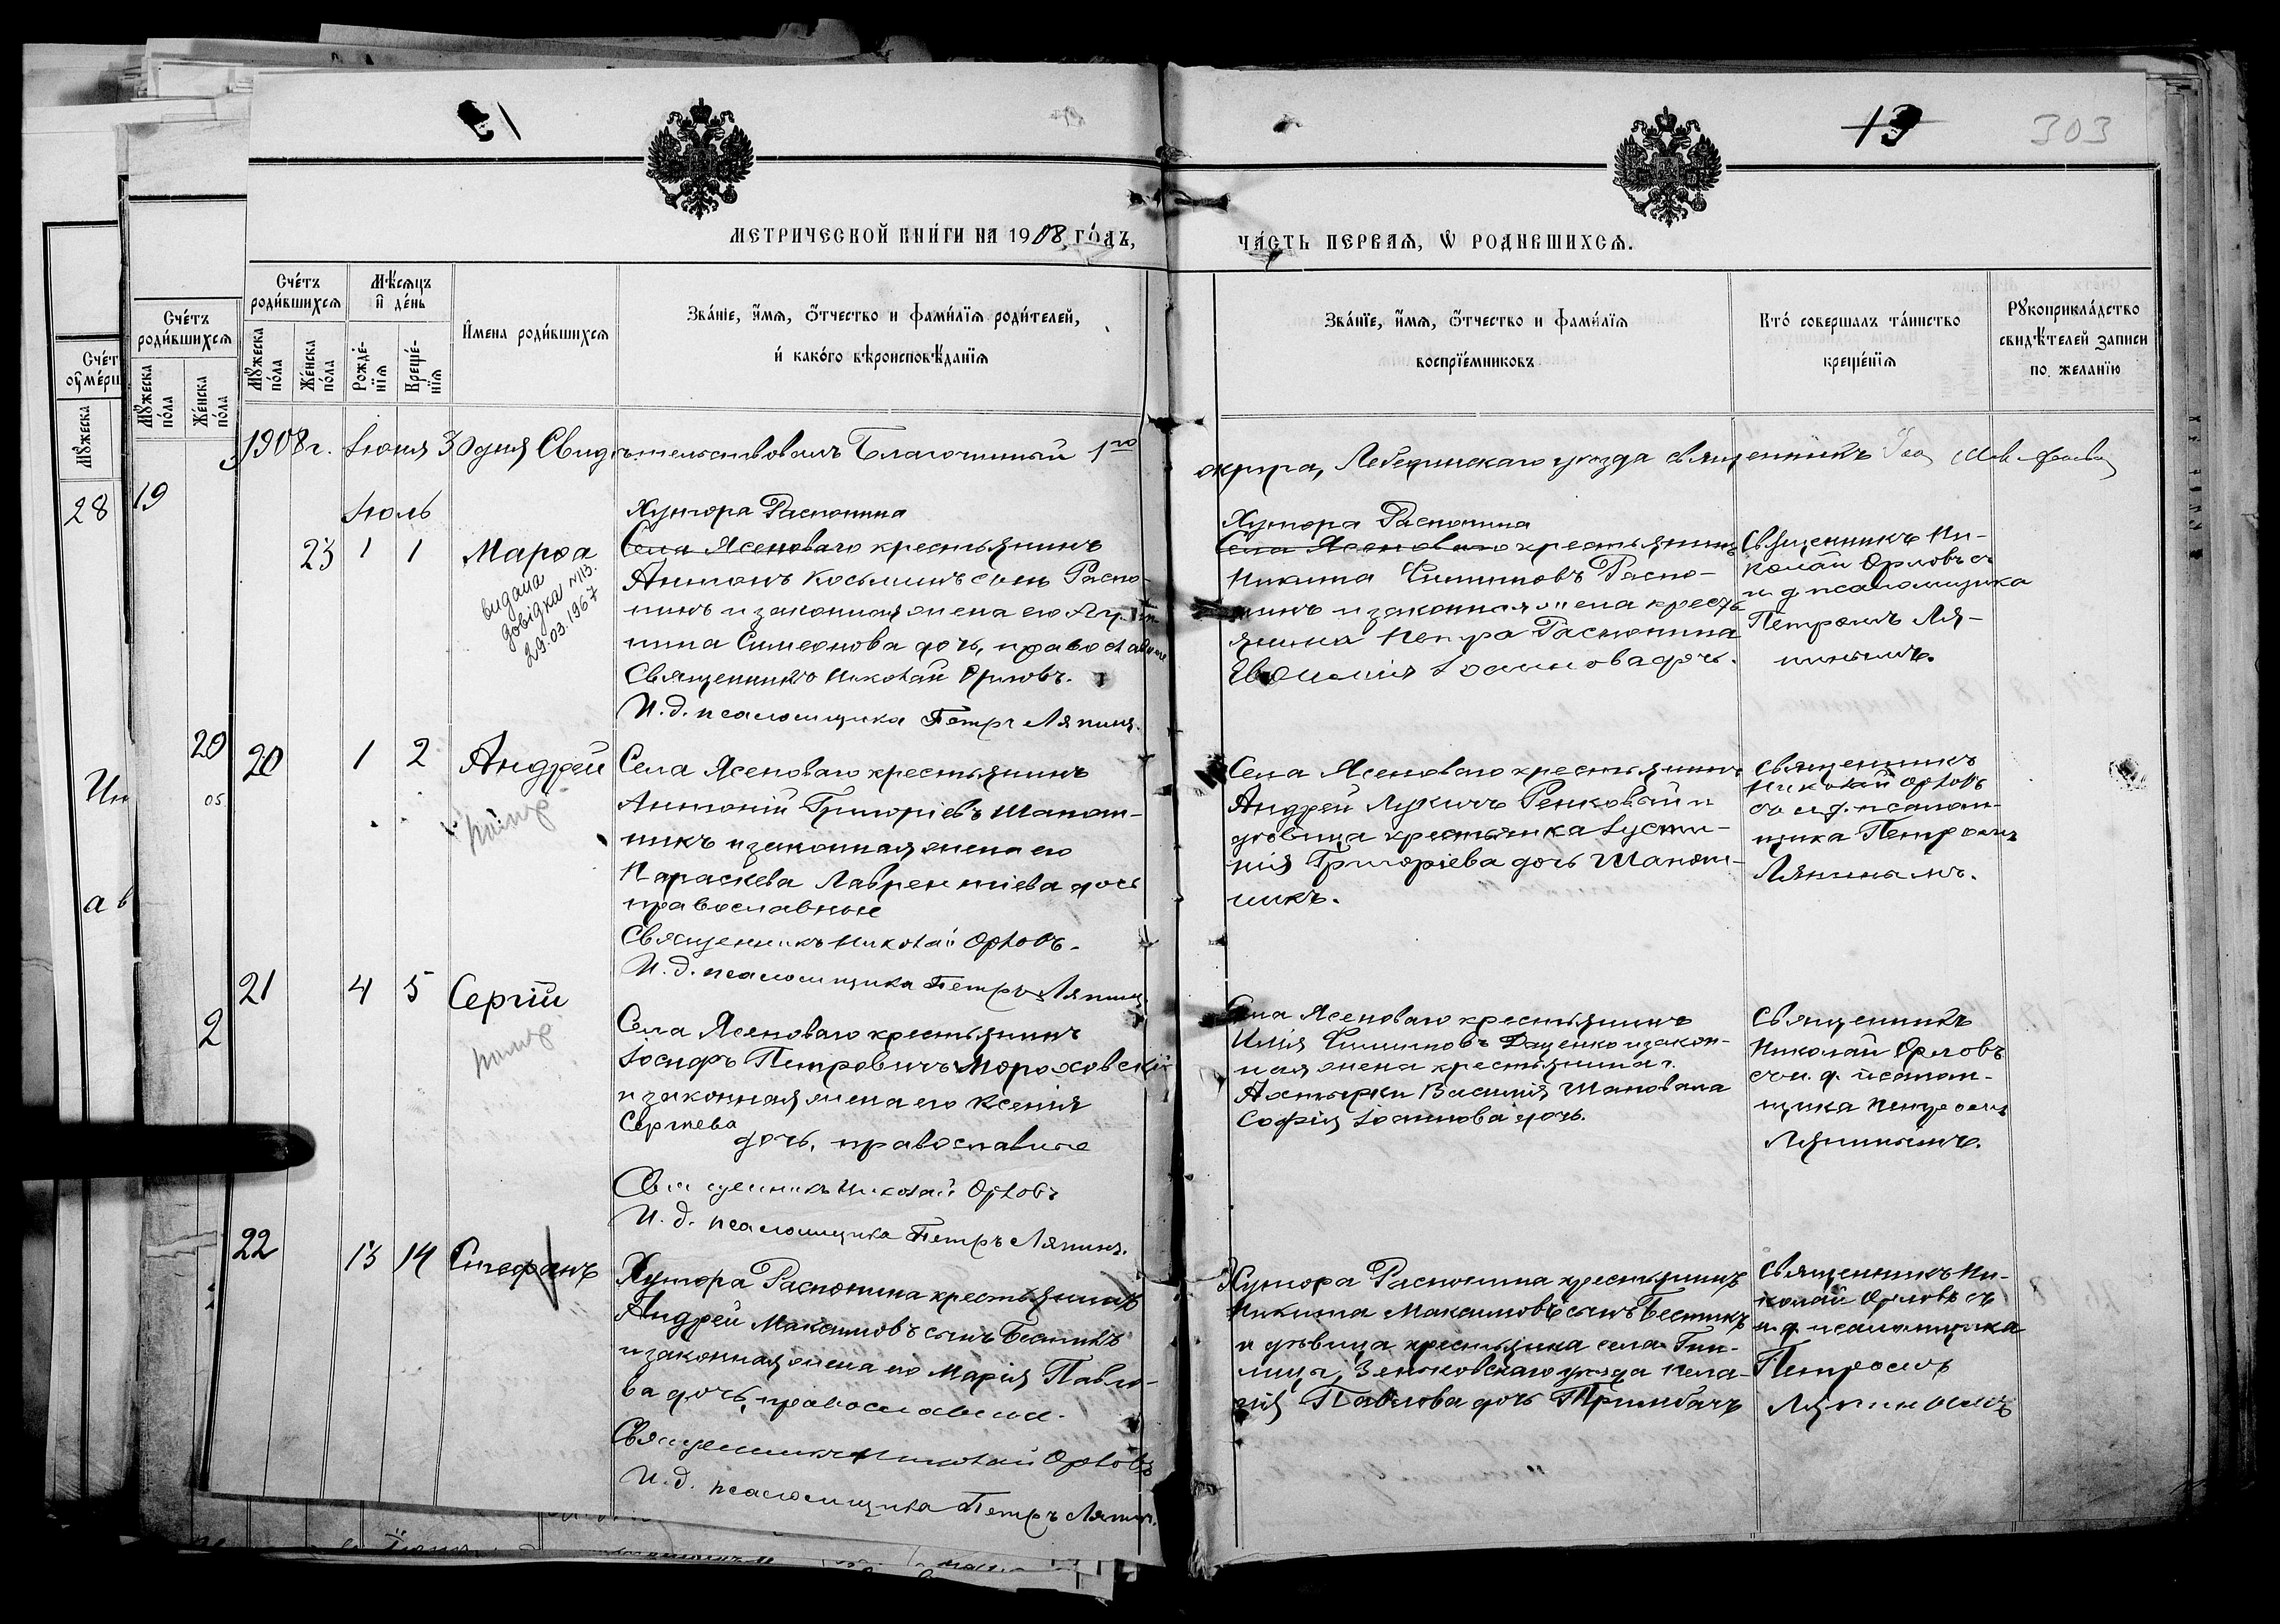 13
303
МЕТРИЧЕСКОЙ КНИ́ГИ НА 1908 ГО́ДЪ,
ЧА́СТЬ ПЕРВАѦ, Ѡ РОДИВШИХСѦ.
Сче́тъ родившихсѧ
Мѣсѧцъ и де́нь
Имена роди́вшихсѧ
Зва́нїе, и́мѧ, ѻ҆́тчество и фами́лїѧ роди́телей,
и како́го вѣроисповѣ́данїѧ
Мꙋжеска по́ла
Же́нска по́ла
Рожде́нїѧ
Креще́нїѧ
Зва́нїе, и́мѧ, ѻ҆́тчество и фами́лїѧ
воспрїе́мниковъ
Кто́ соверша́лъ та́инство
креще́нїѧ
Рꙋкоприкла́дство
свидѣ́телей записи
по жела́нїю
Сче́тъ
роди́вшихсѧ
Мꙋжеска по́ла
Же́нска по́ла
Мꙋжеска
28
19
20
2
1908 г. Іюня 30 дня Свидѣтельствовалъ Благочинный 1го
округа, Лебединскаго уѣзда священникъ
Іюль
23 1 1 Марѳа
видана
довідка №13.
29.03.1967
Хутора Распопина
Села Ясеноваго крестьянинъ
Антонъ Косьминъ сынъ Распо-
пинъ и законная жена его
Симеонова дочь, православные
Священникъ Николай Орловъ.
И. д. псаломщика Петръ Ляпинъ.
Хутора Распопина
Села Ясеноваго крестьянинъ
Никита Филиповъ Распо-
пинъ и законная жена кресть
янина Петра Распопина
Евѳимія Іоаннова дочь.
Священникъ Ни-
колай Орловъ съ
и. д. псаломщика
Петромъ Ля-
пинымъ.
20 1 2 Андрей
Села Ясеноваго крестьянинъ
Антоній Григоріевъ Шапош-
никъ и законная жена его
Параскева Лаврентіева дочь
православные
Священникъ Николай Орловъ.
И. д. псаломщика Петръ Ляпинъ.
Села Ясеноваго крестьянинъ
Андрей Лукичъ Ренковый и
дѣвица крестьянка Іусти-
нія Григоріева дочь Шапош-
никъ.
священникъ
Николай Орловъ
съ и. д. псалом-
щика Петромъ
Ляпинымъ.
21 4 5 Сергій
Села Ясеноваго крестьянинъ
Іосифъ Петровичъ Мороховскій
и законная жена его Ксенія
Сергіева
дочь, православные
Священникъ Николай Орловъ
И. д. псаломщика Петръ Ляпинъ.
Села Ясеноваго крестьянинъ
Илія Филиповъ Даценко и закон-
ная жена крестьянина г.
Ахтырки Василія Шаповала
Софія Іоаннова дочь.
Священникъ
Николай Орловъ
съ и. д. псалом-
щика Петромъ
Ляпинымъ.
22 13 14 Стефанъ
Хутора Распопина крестьянинъ
Андрей Максимовъ сынъ Бестикъ
и законная жена его Марія Павло-
ва дочь, православные.
Священникъ Николай Орловъ
И. д. псаломщика Петръ Ляпинъ.
Хутора Распопина крестьянинъ
Никита Максимовъ сынъ Бестикъ
и дѣвица крестьянка села
Зеньковскаго уѣзда Пела-
гія Павлова дочь Тримбачъ
Священникъ Ни-
колай Орловъ съ
и. д. псаломщика
Петромъ
Ляпинымъ